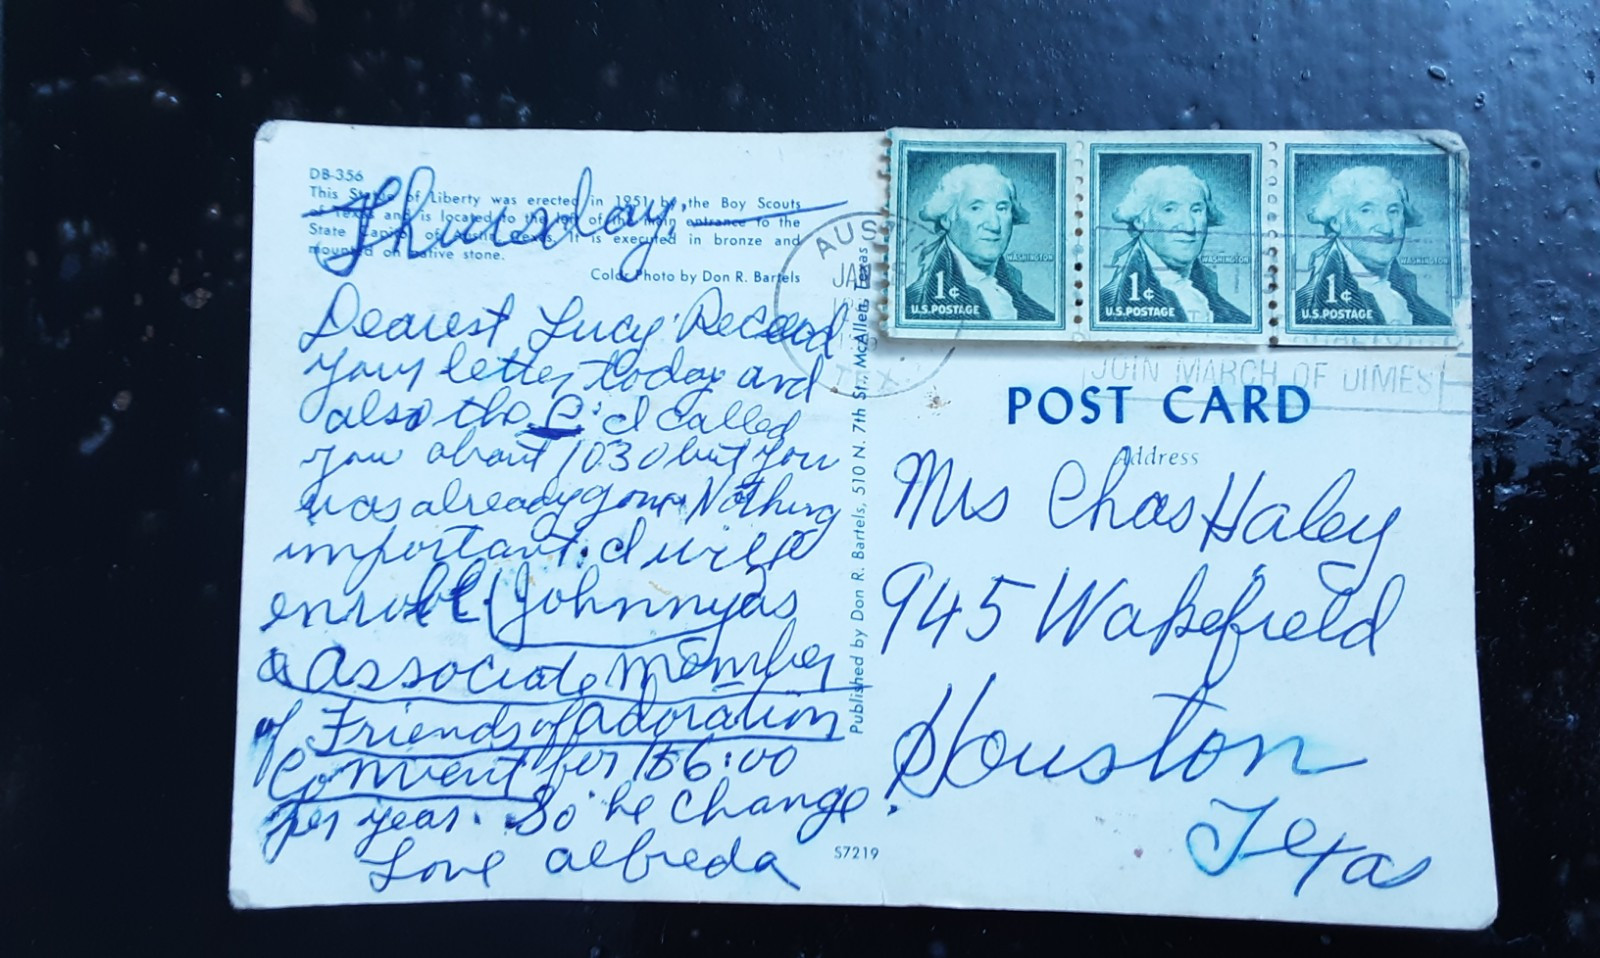 DB-356
This Statue of Liberty was erected in 1951 by the Boy Scouts
of Texas and is located to the left of the main entrance to the
State Capitol of Austin, Texas. It is executed in bronze and
mounted on native stone.
Color Photo by Don R. Bartels
Thursday.
Dearest Lucy: Received
your letter today and
also the
I called
you about 1030 but you
was already gone. Nothing
important. I will
enroll Johnny as
a associate member
of Friends of adoration
Convent for
6:00
per year. So he change.
Love alfreda
S7219
Published by Don R. Bartels, 510 N. 7th St., McAllen, Texas
AUS
JAN
TEX
WASHINGTON
1¢
U.S. POSTAGE
WASHINGTON
1¢
U.S. POSTAGE
WASHINGTON
1¢
U.S. POSTAGE
JOIN MARCH OF DIMES
POST CARD
Address
Mrs Chas Haley
945 Wakefield
Houston
Texas